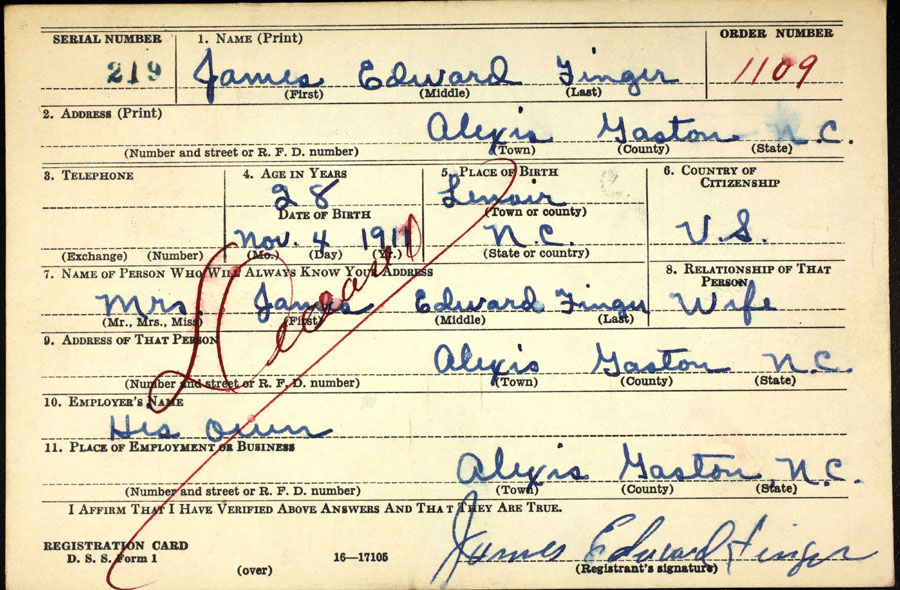 SERIAL NUMBER 1. NAME (Print) ORDER NUMBER
219 James Edward Finger 1109
(First) (Middle) (Last)
2. ADDRESS (Print)
Alexis Gaston N.C.
(Number and street or R. F. D. number) (Town) (County) (State)
3. TELEPHONE 4. AGE IN YEARS 5. PLACE OF BIRTH 6. COUNTRY OF
CITIZENSHIP
28 Lenoir
DATE OF BIRTH (Town or county)
Nov. 4 1911 N.C. U.S.
(Exchange) (Number) (Mo.) (Day) (Yr.) (State or country)
7. NAME OF PERSON WHO WILL ALWAYS KNOW YOUR ADDRESS 8. RELATIONSHIP OF THAT
PERSON
Mrs. James Edward Finger Wife
(Mr., Mrs., Miss) (First) (Middle) (Last)
9. ADDRESS OF THAT PERSON
Alexis Gaston N.C.
(Number and street or R. F. D. number) (Town) (County) (State)
10. EMPLOYER'S NAME
His Own
11. PLACE OF EMPLOYMENT OR BUSINESS
Alexis Gaston, N.C.
(Number and street or R. F. D. number) (Town) (County) (State)
I AFFIRM THAT I HAVE VERIFIED ABOVE ANSWERS AND THAT THEY ARE TRUE.
REGISTRATION CARD
D. S. S. Form 1 16—17105 James Edward Finger
(over) (Registrant's signature)